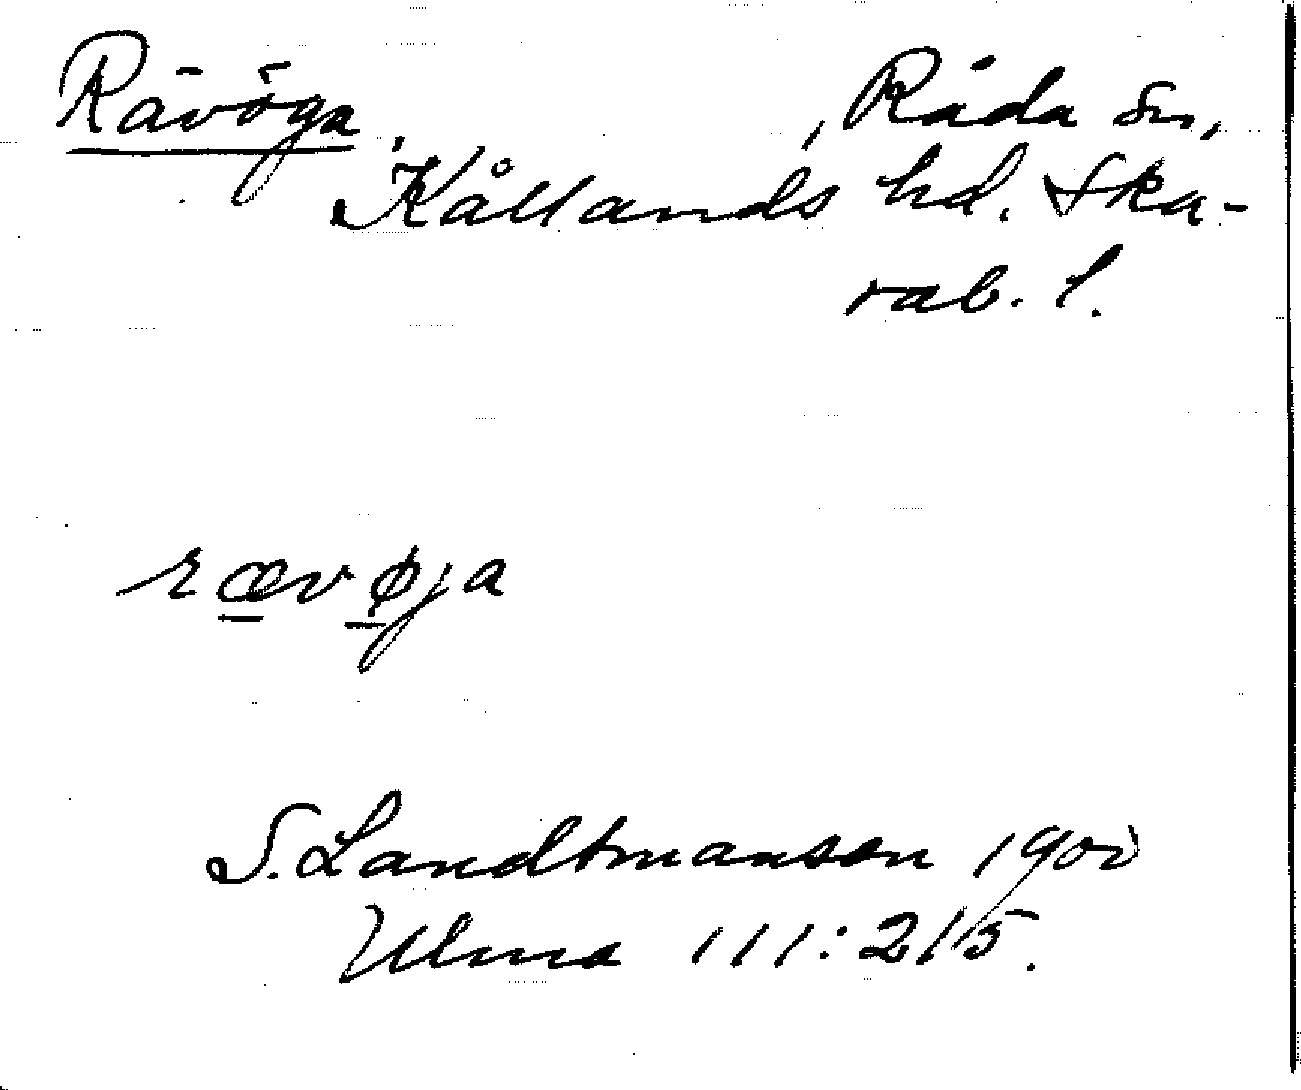 Rävöga, , Råda sn,
Kållands hd. Ska-
rab. l.
rævøja
S. Landtmanson 1900
Ulma 111:215.